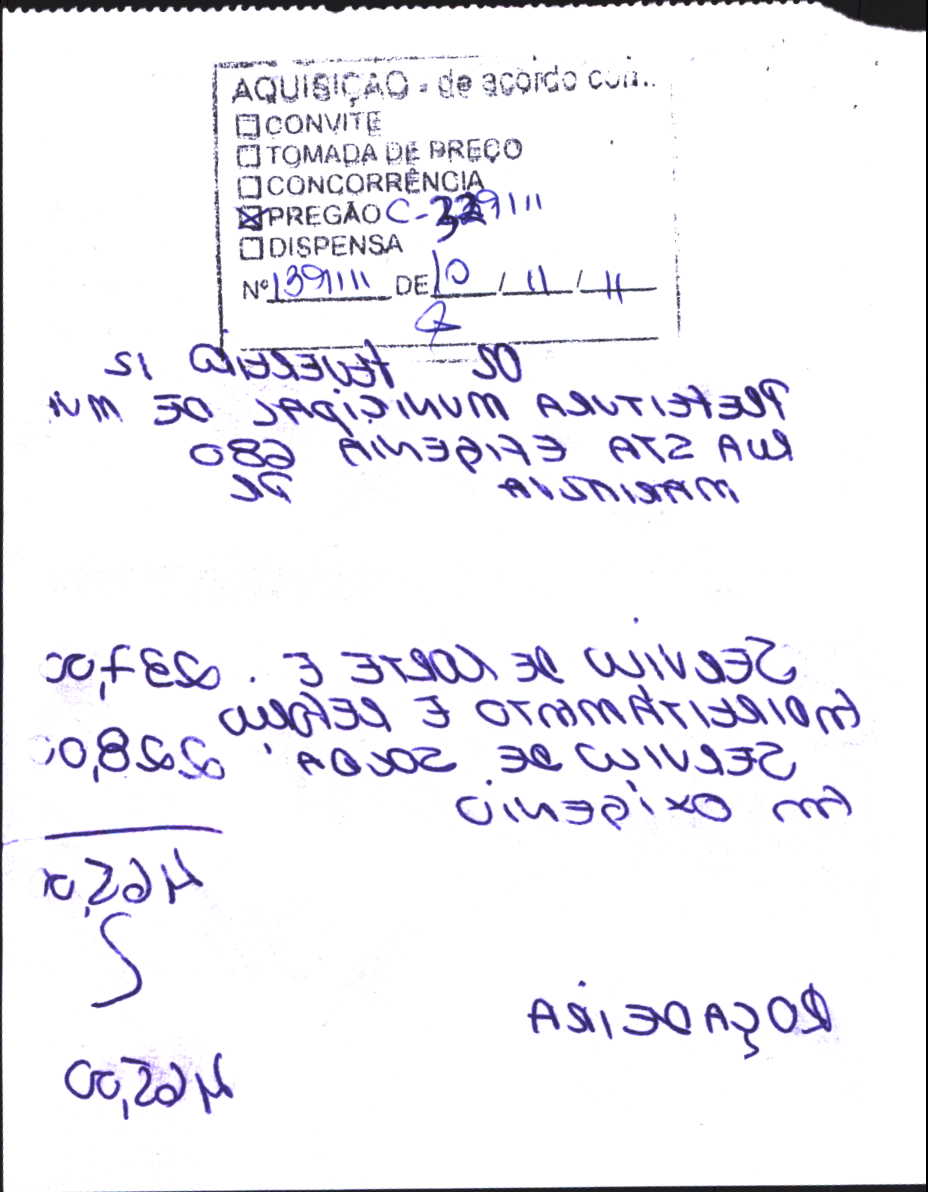 AQUISIÇÃO - de acordo com..
☐ CONVITE
☐ TOMADA DE PREÇO
☐ CONCORRÊNCIA
☒ PREGÃO C-
☐ DISPENSA
Nº 139/11 DE 10 / 11 / 11
02 FEVEREIRO 12
PREFEITURA MUNICIPAL DE MUN
RUA STA EFIGENIA 680
PR
SERVIÇO DE CORTE E . 237,00
ENDIREITAMENTO E REFORÇO
SERVIÇO DE SOLDA 228,00
EM OXIGENIO
465,00
465,00
ROÇADEIRA